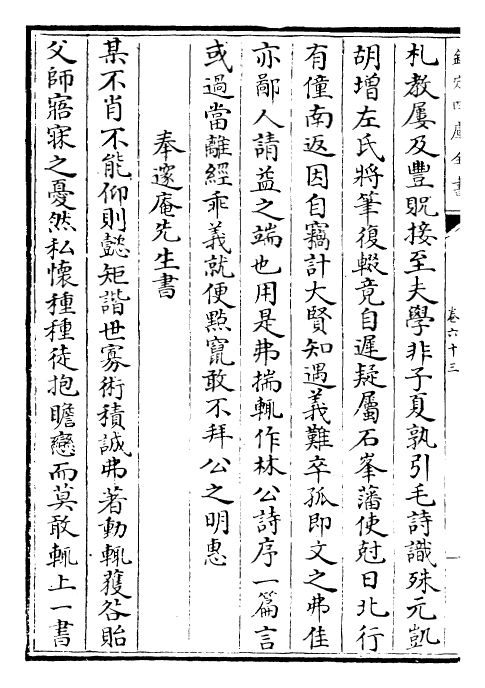 欽定四庫全書
卷六十三
一
札教屢及豐貺接至夫學非子夏孰引毛詩識殊元凱
胡增左氏將筆復輟竟自遲疑屬石峯藩使尅日北行
有僮南返因自竊計大賢知遇義難卒孤即文之弗佳
亦鄙人請益之端也用是弗揣輒作林公詩序一篇言
或過當離經乖義就便㸃竄敢不拜公之明惠
奉邃庵先生書
某不肖不能仰則懿矩諧世寡術積誠弗著動輒獲咎貽
父師寤寐之憂然私懷種種徒抱瞻戀而莫敢輒上一書